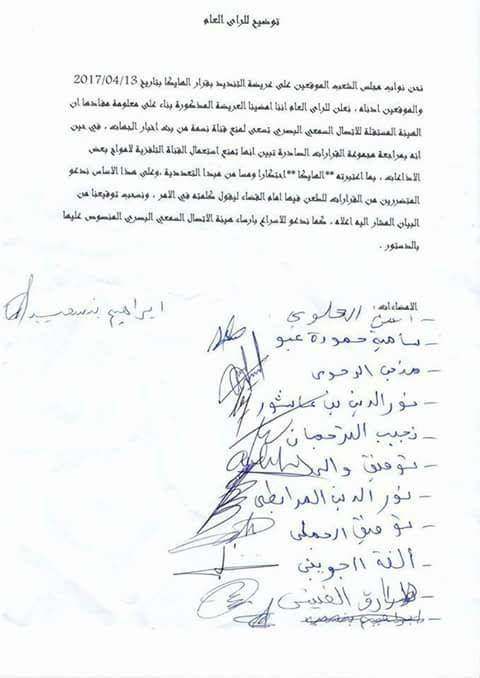 توضيح للراي العام
نحن نواب مجلس الشعب الموقعين على عريضة التنديد بقرار الهايكا بتاريخ 2017/04/13
والموقعين ادناه ، نعلن للراي العام اننا امضينا العريضة المذكورة بناء على معلومة مفادها ان
الهيئة المستقلة للاتصال السمعي البصري تسعى لمنع قناة نسمة من بث اخبار الجهات ، في حين
انه بمراجعة مجموعة القرارات الصادرة تبين انها تمنع استعمال القناة التلفزية لامواج بعض
الاذاعات ، بما اعتبرته **الهايكا **احتكارا ومسا من مبدا التعددية .وعلى هذا الاساس ندعو
المتضررين من القرارات للطعن فيها امام القضاء ليقول كلمته في الامر ، ونسحب توقيعنا من
البيان المشار اليه اعلاه ، كما ندعو للاسراع بارساء هيئة الاتصال السمعي البصري المنصوص عليها
بالدستور .
الامضاءات :
ابراهيم بن سعيد
- أيمن العلوي
- سامية حمودة عبو
- منجي الرحوي
- نور الدين بن عاشور
- نجيب الترجمان
- توفيق والي
- نور الدين المرابطي
- توفيق الجملي
- ألفة الجويني
- طارق الفتيتي